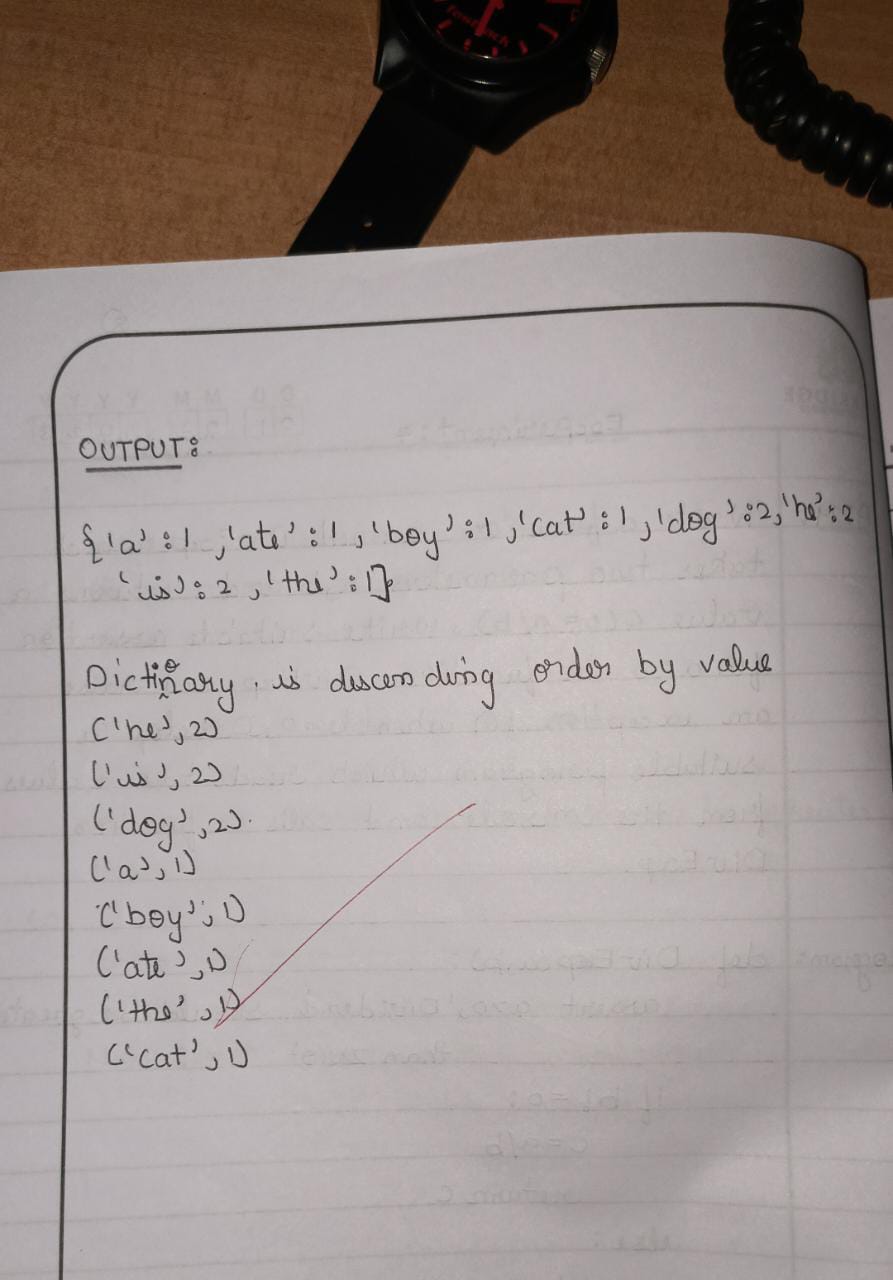 OUTPUT:
{'a':1,'ate':1,'boy':1,'cat':1,'dog':2,'he':2
'is':2,'the':1}
Dictioñary. is descending order by value
('he',2)
('is',2)
('dog',2).
('a',1)
('boy',1)
('ate',1)
('the',1)
('cat',1)